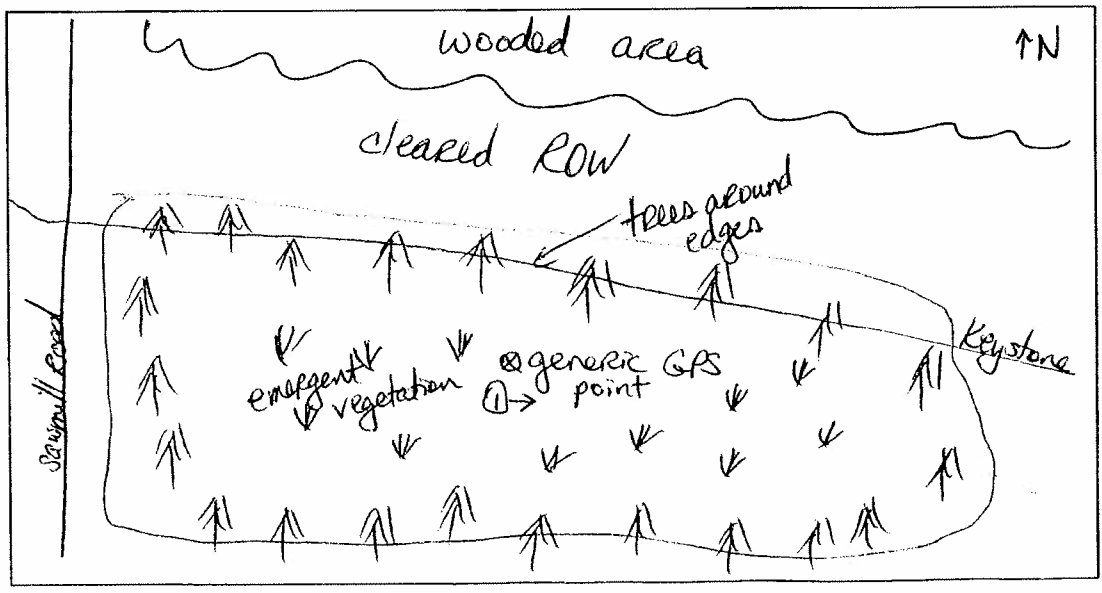 wooded area
↑N
cleared ROW
trees around
edges
Keystone
Sawmill Road
emergent
vegetation
⊗generic GPS
point
①→